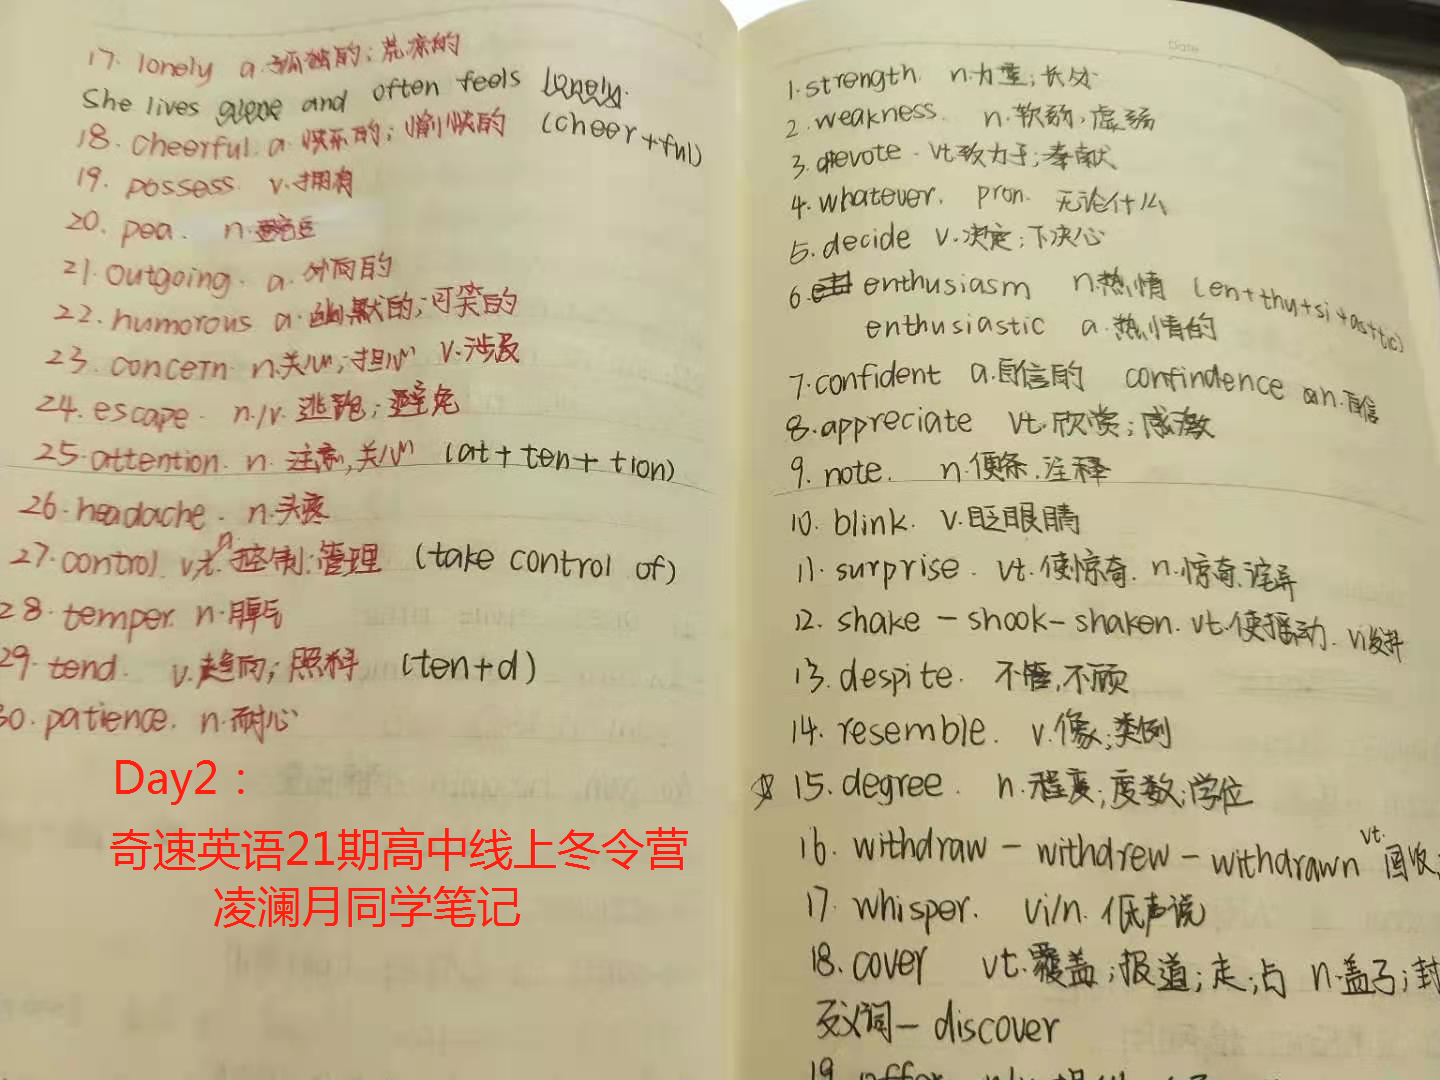 17. lonely a.孤独的;荒凉的
She lives alone and often feels lonely.
18. cheerful. a.快乐的;愉快的 (cheer+ful)
19. possess. v.拥有
20. pea. n.豌豆
21. outgoing. a.外向的
22. humorous a.幽默的;可笑的
23. concern n.关心;担心 v.涉及
24. escape. n./v. 逃跑;避免
25. attention. n. 注意,关心 (at+ten+tion)
26. headache. n.头疼
27. control v.t.n.控制;管理 (take control of)
28. temper. n.脾气
29. tend. v.趋向;照料 (ten+d)
30. patience. n.耐心
Day2：
奇速英语21期高中线上冬令营
凌澜月同学笔记
Date
1.strength. n.力量;长处
2.weakness. n.软弱,虚弱
3.devote. vt.致力于;奉献
4.whatever. pron. 无论什么
5.decide v.决定;下决心
6. enthusiasm n.热情 (en+thu+si+as+tic)
enthusiastic a.热情的
7.confident a.自信的 confindence n.自信
8.appreciate vt.欣赏;感激
9. note. n.便条.注释
10. blink. v.眨眼睛
11. surprise. vt.使惊奇. n.惊奇.诧异
12. shake - shook - shaken. vt.使摇动. vi发抖
13. despite. 不管,不顾
14. resemble. v.像;类例
☆ 15. degree. n.程度;度数;学位
16. withdraw - withdrew - withdrawn vt. 回收;
17. whisper. vi/n. 低声说
18. cover vt.覆盖;报道;走;占 n.盖子;封
反义词- discover
19. offer